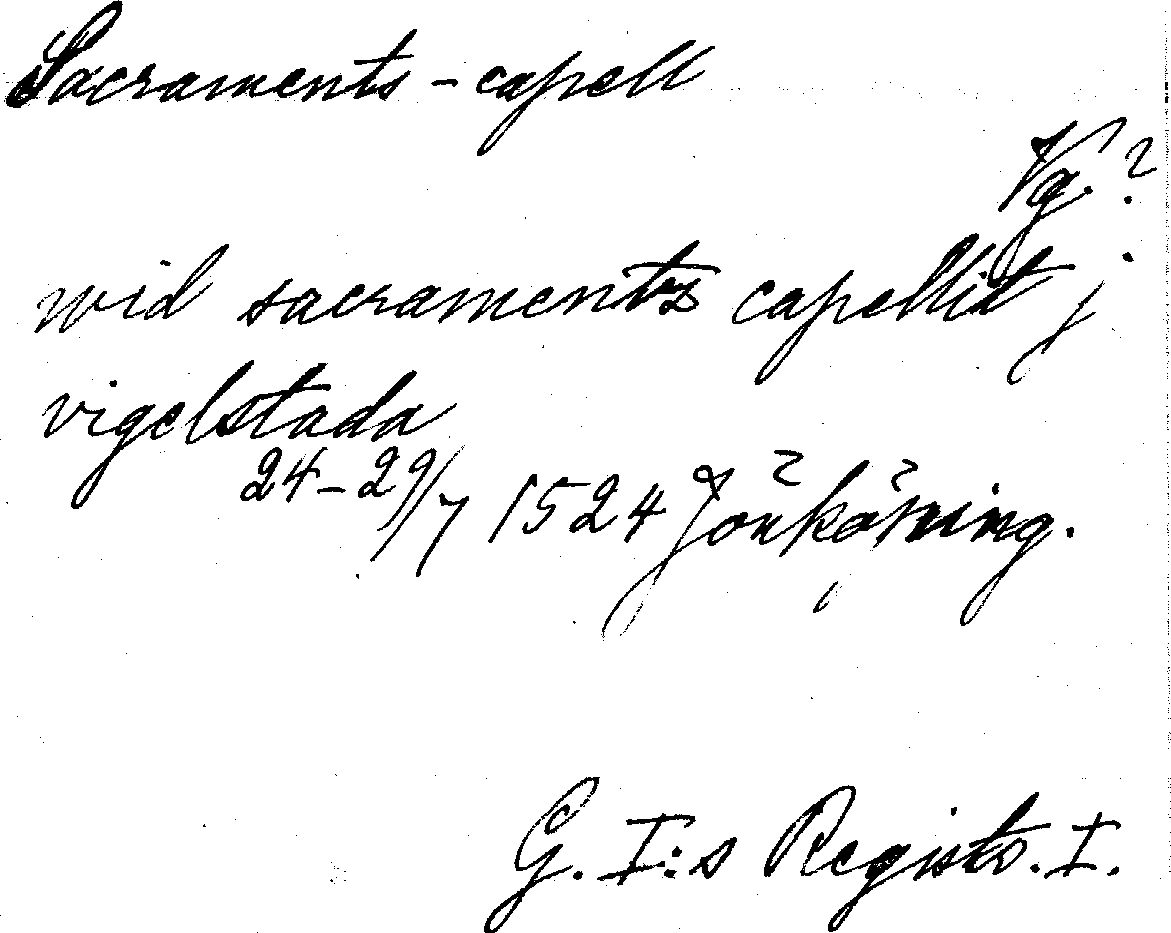 Sacraments-capell
Vg.?
wid sacramentz capellit j
vigelstada
24-29/7 1524 Jönköping.
G. I:s Registr. I.